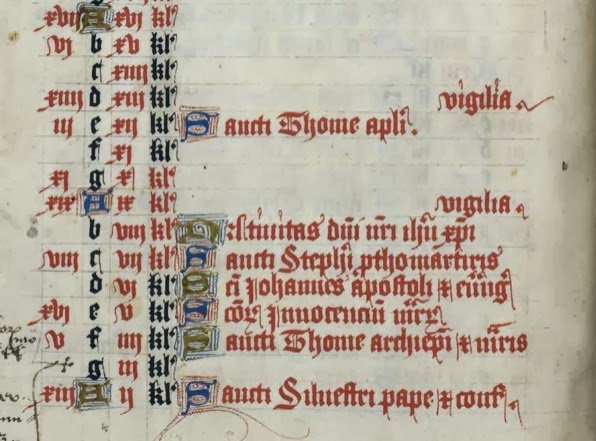 xvii A xvi kl'
vi b xv kl'
c xiiii kl'
xiiii d xiii kl' vigilia
iii e xii kl' Sancti Thome apli.
f xi kl'
xi g x kl'
xix A ix kl' vigilia
b viii kl' Natiuitas dni nri ihu xpi
viii c vii kl' Sancti Stephi pthomartiris
d vi kl' Sci Johannes apostoli &
xvi e v kl' innocenciu
v f iiii kl' Sancti Thome archiepi & mris
g iii kl'
xiii A ii kl' Sancti Siluestri pape & conf